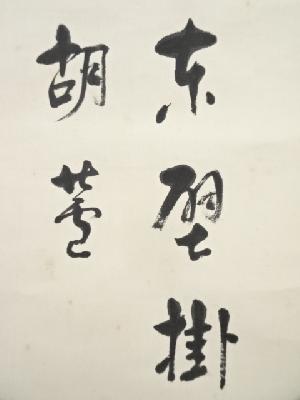 东壁掛
胡蘆